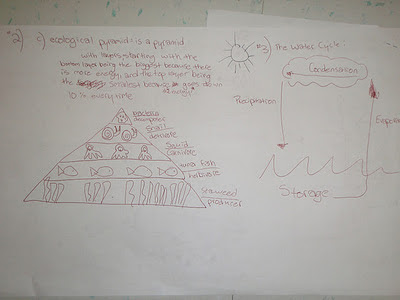 #2) c) ecological pyramid: is a pyramid
with layers, starting with the
bottom layer being the biggest because there
is more energy, and the top layer being
the smallest because goes down
10 % every time
bacteria
decomposer
Snail
detrivore
Squid
Carnivore
tuna fish
herbivore
seaweed
producer
#3) The Water Cycle:
Condensation
Precipitation
Storage